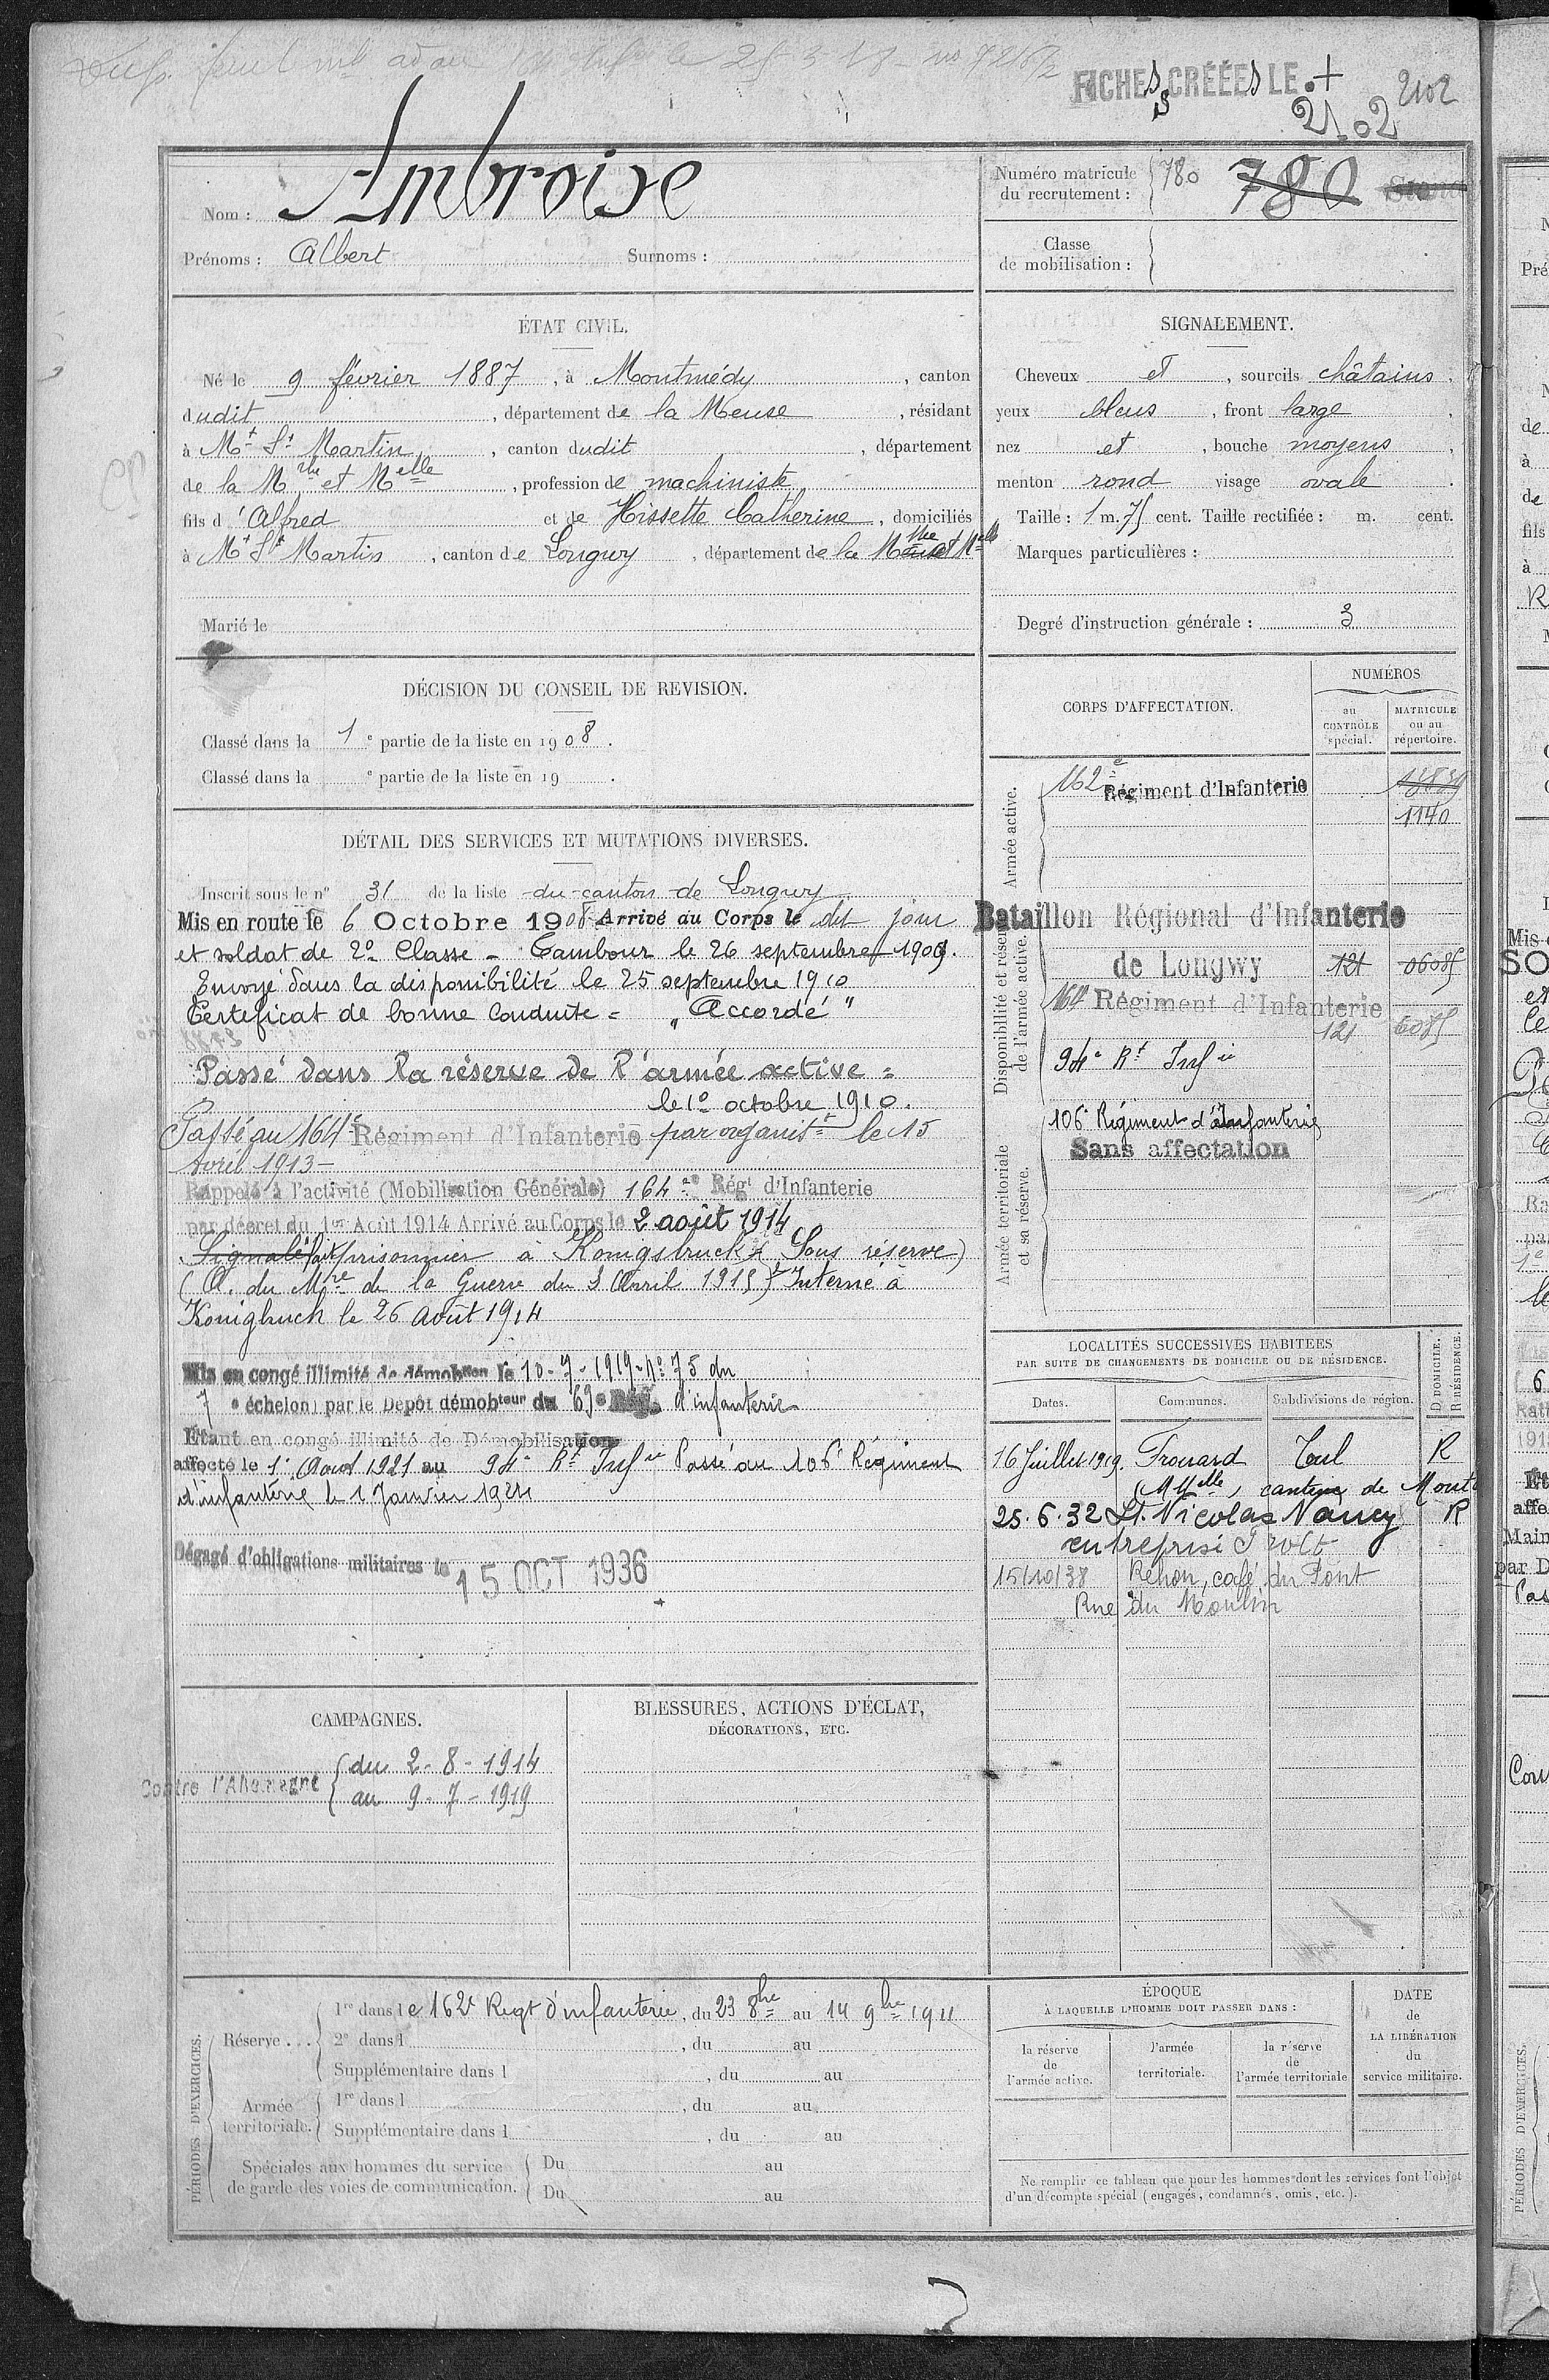 le 25-3-18
FICHES CRÉÉES LE
2102
21-02
Nom : Ambroise
Prénoms : Albert Surnoms :
Numéro matricule du recrutement : 780 780
Classe de mobilisation :
ÉTAT CIVIL.
Né le 9 février 1887, à Montmédy, canton
dudit, département de la Meuse, résidant
à Mt St Martin, canton dudit, département
de la Mthe et Melle, profession de machiniste
fils d'Alfred et de Hissette Catherine, domiciliés
à Mt St Martin, canton de Longwy, département de la Mthe et Mlle
Marié le
SIGNALEMENT.
Cheveux et, sourcils châtains.
yeux bleus, front large
nez et, bouche moyens,
menton rond visage ovale.
Taille : 1 m. 75 cent. Taille rectifiée : m. cent.
Marques particulières :
Degré d'instruction générale : 3
DÉCISION DU CONSEIL DE REVISION.
Classé dans la 1e partie de la liste en 1908.
Classé dans la e partie de la liste en 19 .
DÉTAIL DES SERVICES ET MUTATIONS DIVERSES.
Inscrit sous le n° 31 de la liste du canton de Longwy
Mis en route le 6 Octobre 1908 Arrivé au Corps le dit jour
et soldat de 2e Classe - Tambour le 26 septembre 1909.
Envoyé dans la disponibilité le 25 septembre 1910
Certeficat de bonne Conduite = "Accordé"
Passé dans la réserve de l'armée active =
le 1e octobre 1910.
Passé au 164e Régiment d'Infanterie par organist. le 15
Avril 1913 -
Rappelé à l'activité (Mobilisation Générale) 164e Régt d'Infanterie
par décret du 1er Août 1914 Arrivé au Corps le 2 août 1914
Signalé fait prisonnier à Konigsbruck (Sous réserve)
(A. du Mre de la Guerre du 3 Avril 1915) Interné à
Konigbruck le 26 août 1914
Mis en congé illimité de démobion le 10-7-1919 - No 75 du
7e échelon par le Dépôt démobteur du 69e Rég. d'infanterie
Etant en congé illimité de Démobilisation
affecté le 1e Août 1921 au 94e Rt Infie Passé au 106e Régiment
d'infanterie le 1 Janvier 1924
Dégagé d'obligations militaires le 15 OCT 1936
CORPS D'AFFECTATION.
NUMÉROS
au CONTRÔLE spécial.
MATRICULE ou au répertoire.
Armée active.
162e Régiment d'Infanterie
1140
Disponibilité et réserve de l'armée active.
Bataillon Régional d'Infanterie
de Longwy 121 06085
164 Régiment d'Infanterie
121 6085
94e Rt Infie
Armée territoriale et sa réserve.
106e Régiment d'Infanterie
Sans affectation
LOCALITÉS SUCCESSIVES HABITÉES
PAR SUITE DE CHANGEMENTS DE DOMICILE OU DE RÉSIDENCE.
D. DOMICILE.
R. RÉSIDENCE.
Dates. Communes. Subdivisions de région.
16 Juillet 1919. Frouard Toul R
(M Melle, cantine de Mont
25.6.32 St. Nicolas Nancy R
entreprise
15/10/38 Rehon, café du Pont
Rue du Moulin
CAMPAGNES.
Contre l'Allemagne
du 2-8-1914
au 9-7-1919
BLESSURES, ACTIONS D'ÉCLAT,
DÉCORATIONS, ETC.
PÉRIODES D'EXERCICES.
Réserve...
1re dans le 162e Regt d'infanterie, du 23 8bre au 14 9bre 1911
2e dans l , du au
Supplémentaire dans l , du au
Armée territoriale.
1re dans l , du au
Supplémentaire dans l , du au
Spéciales aux hommes du service de garde des voies de communication.
Du au
Du au
ÉPOQUE
À LAQUELLE L'HOMME DOIT PASSER DANS :
la réserve de l'armée active.
l'armée territoriale.
la réserve de l'armée territoriale
DATE de LA LIBÉRATION du service militaire.
Ne remplir ce tableau que pour les hommes dont les services font l'objet
d'un décompte spécial (engagés, condamnés, omis, etc.).